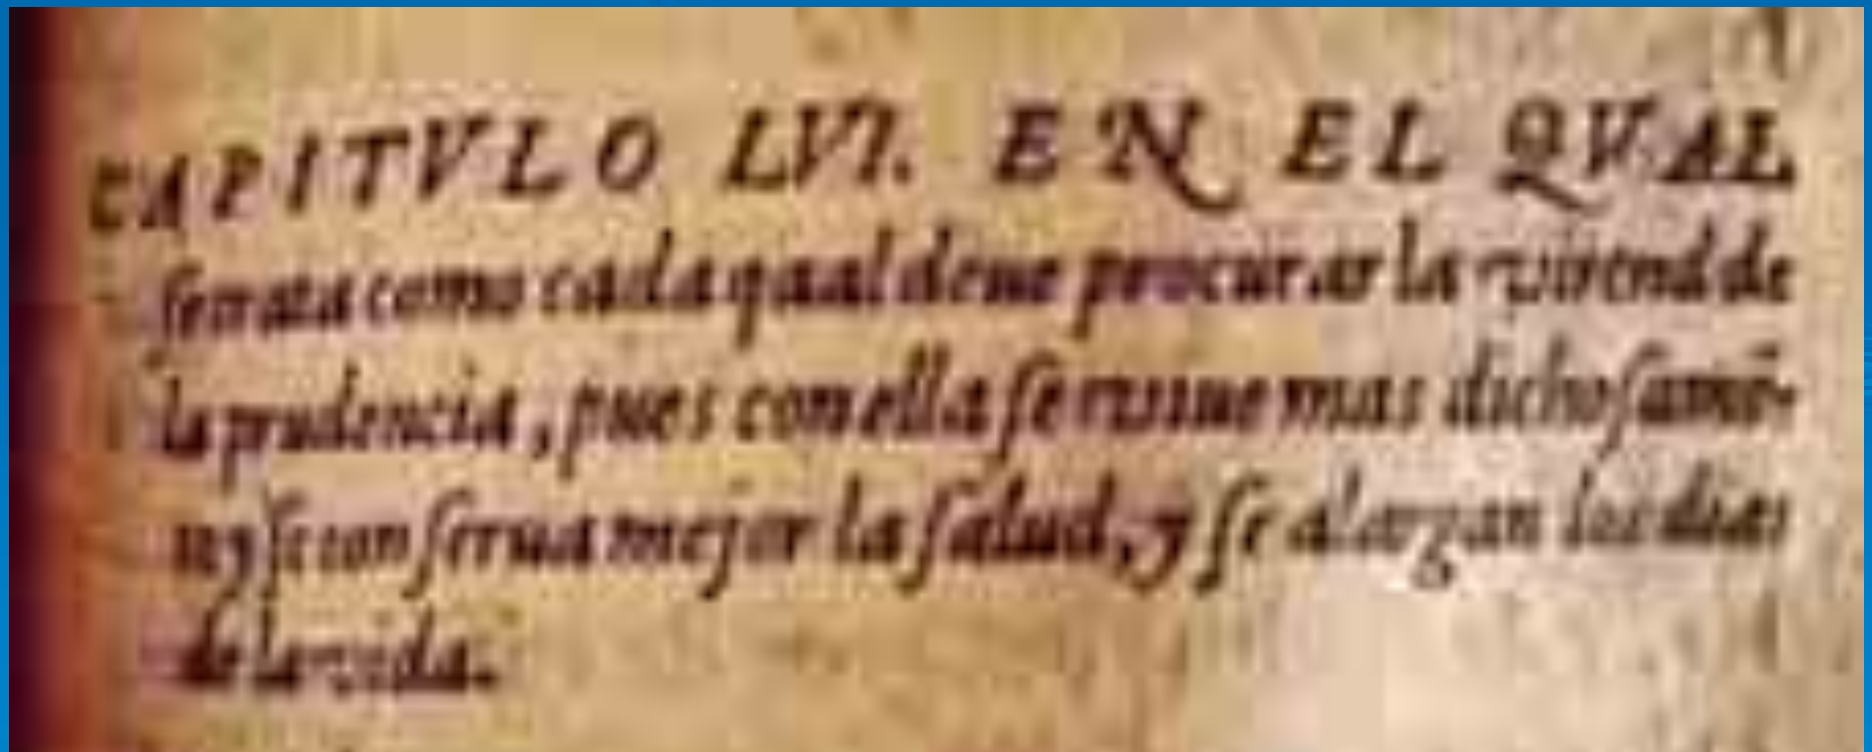 CAPITVLO LVI. EN EL QVAL
ſe trata como cada qual deue procurar la virtud de
la prudencia, pues con ella ſe viue mas dichoſamē-
te, y ſe conſerua mejor la ſalud, y ſe alargan los dias
de la vida.